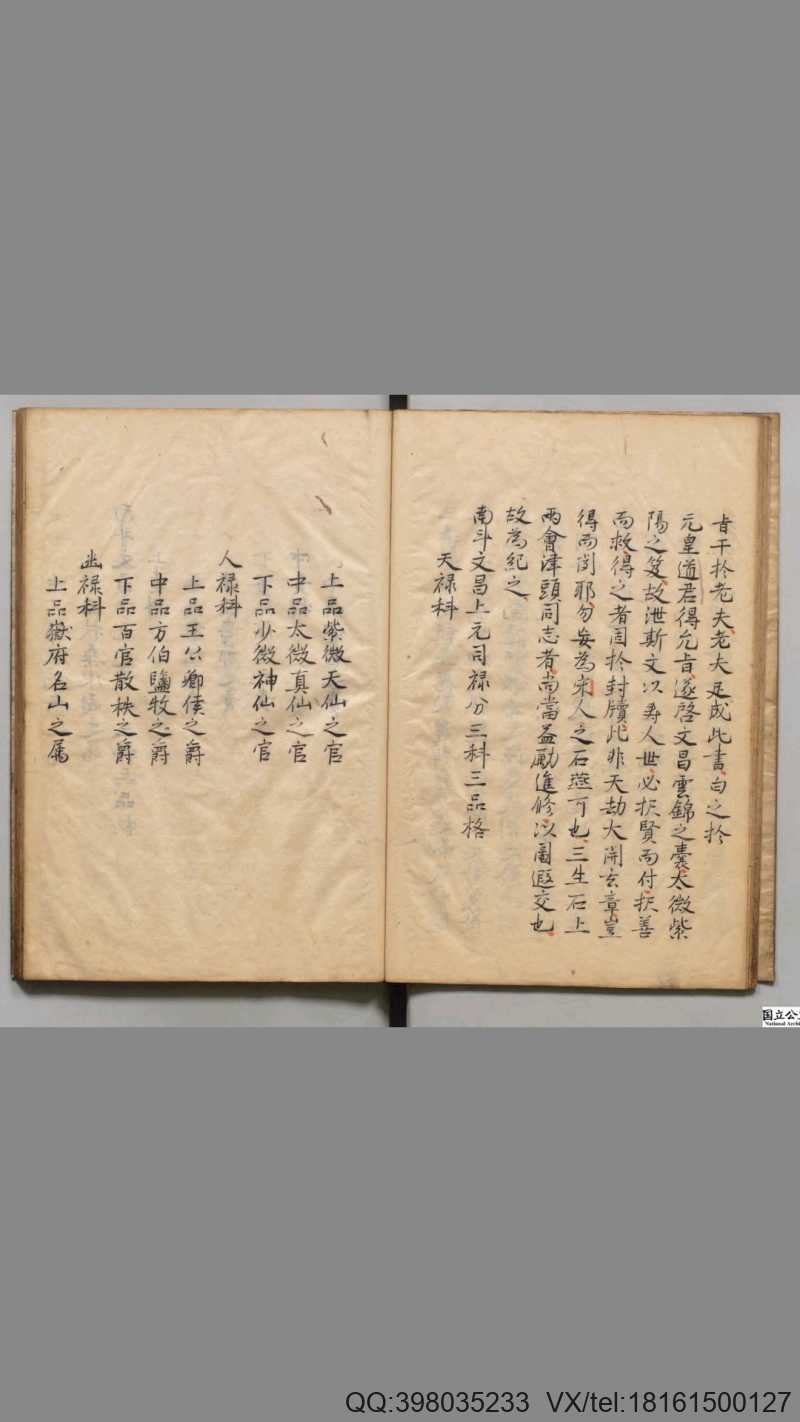 旨干扵老夫老夫足成此書白之扵
元皇道君得允旨遂啓文昌雲錦之囊太微紫
陽之笈故泄斯文以壽人世必択賢而付択善
而救得之者固扵封牘此非天劫大開玄章豈
得而閲耶勿妄為宋人之石燕可也三生石上
兩會津頭同志者尚當益勵進修以圖遐交也
故為紀之
南斗文昌上元司禄分三科三品格
天禄科
上品紫微天仙之官
中品太微真仙之官
下品少微神仙之官
人禄科
上品王公卿侯之爵
中品方伯鹽牧之爵
下品百官散秩之爵
幽禄科
上品嶽府名山之属
国立公
National Archi
QQ:398035233 VX/tel:18161500127